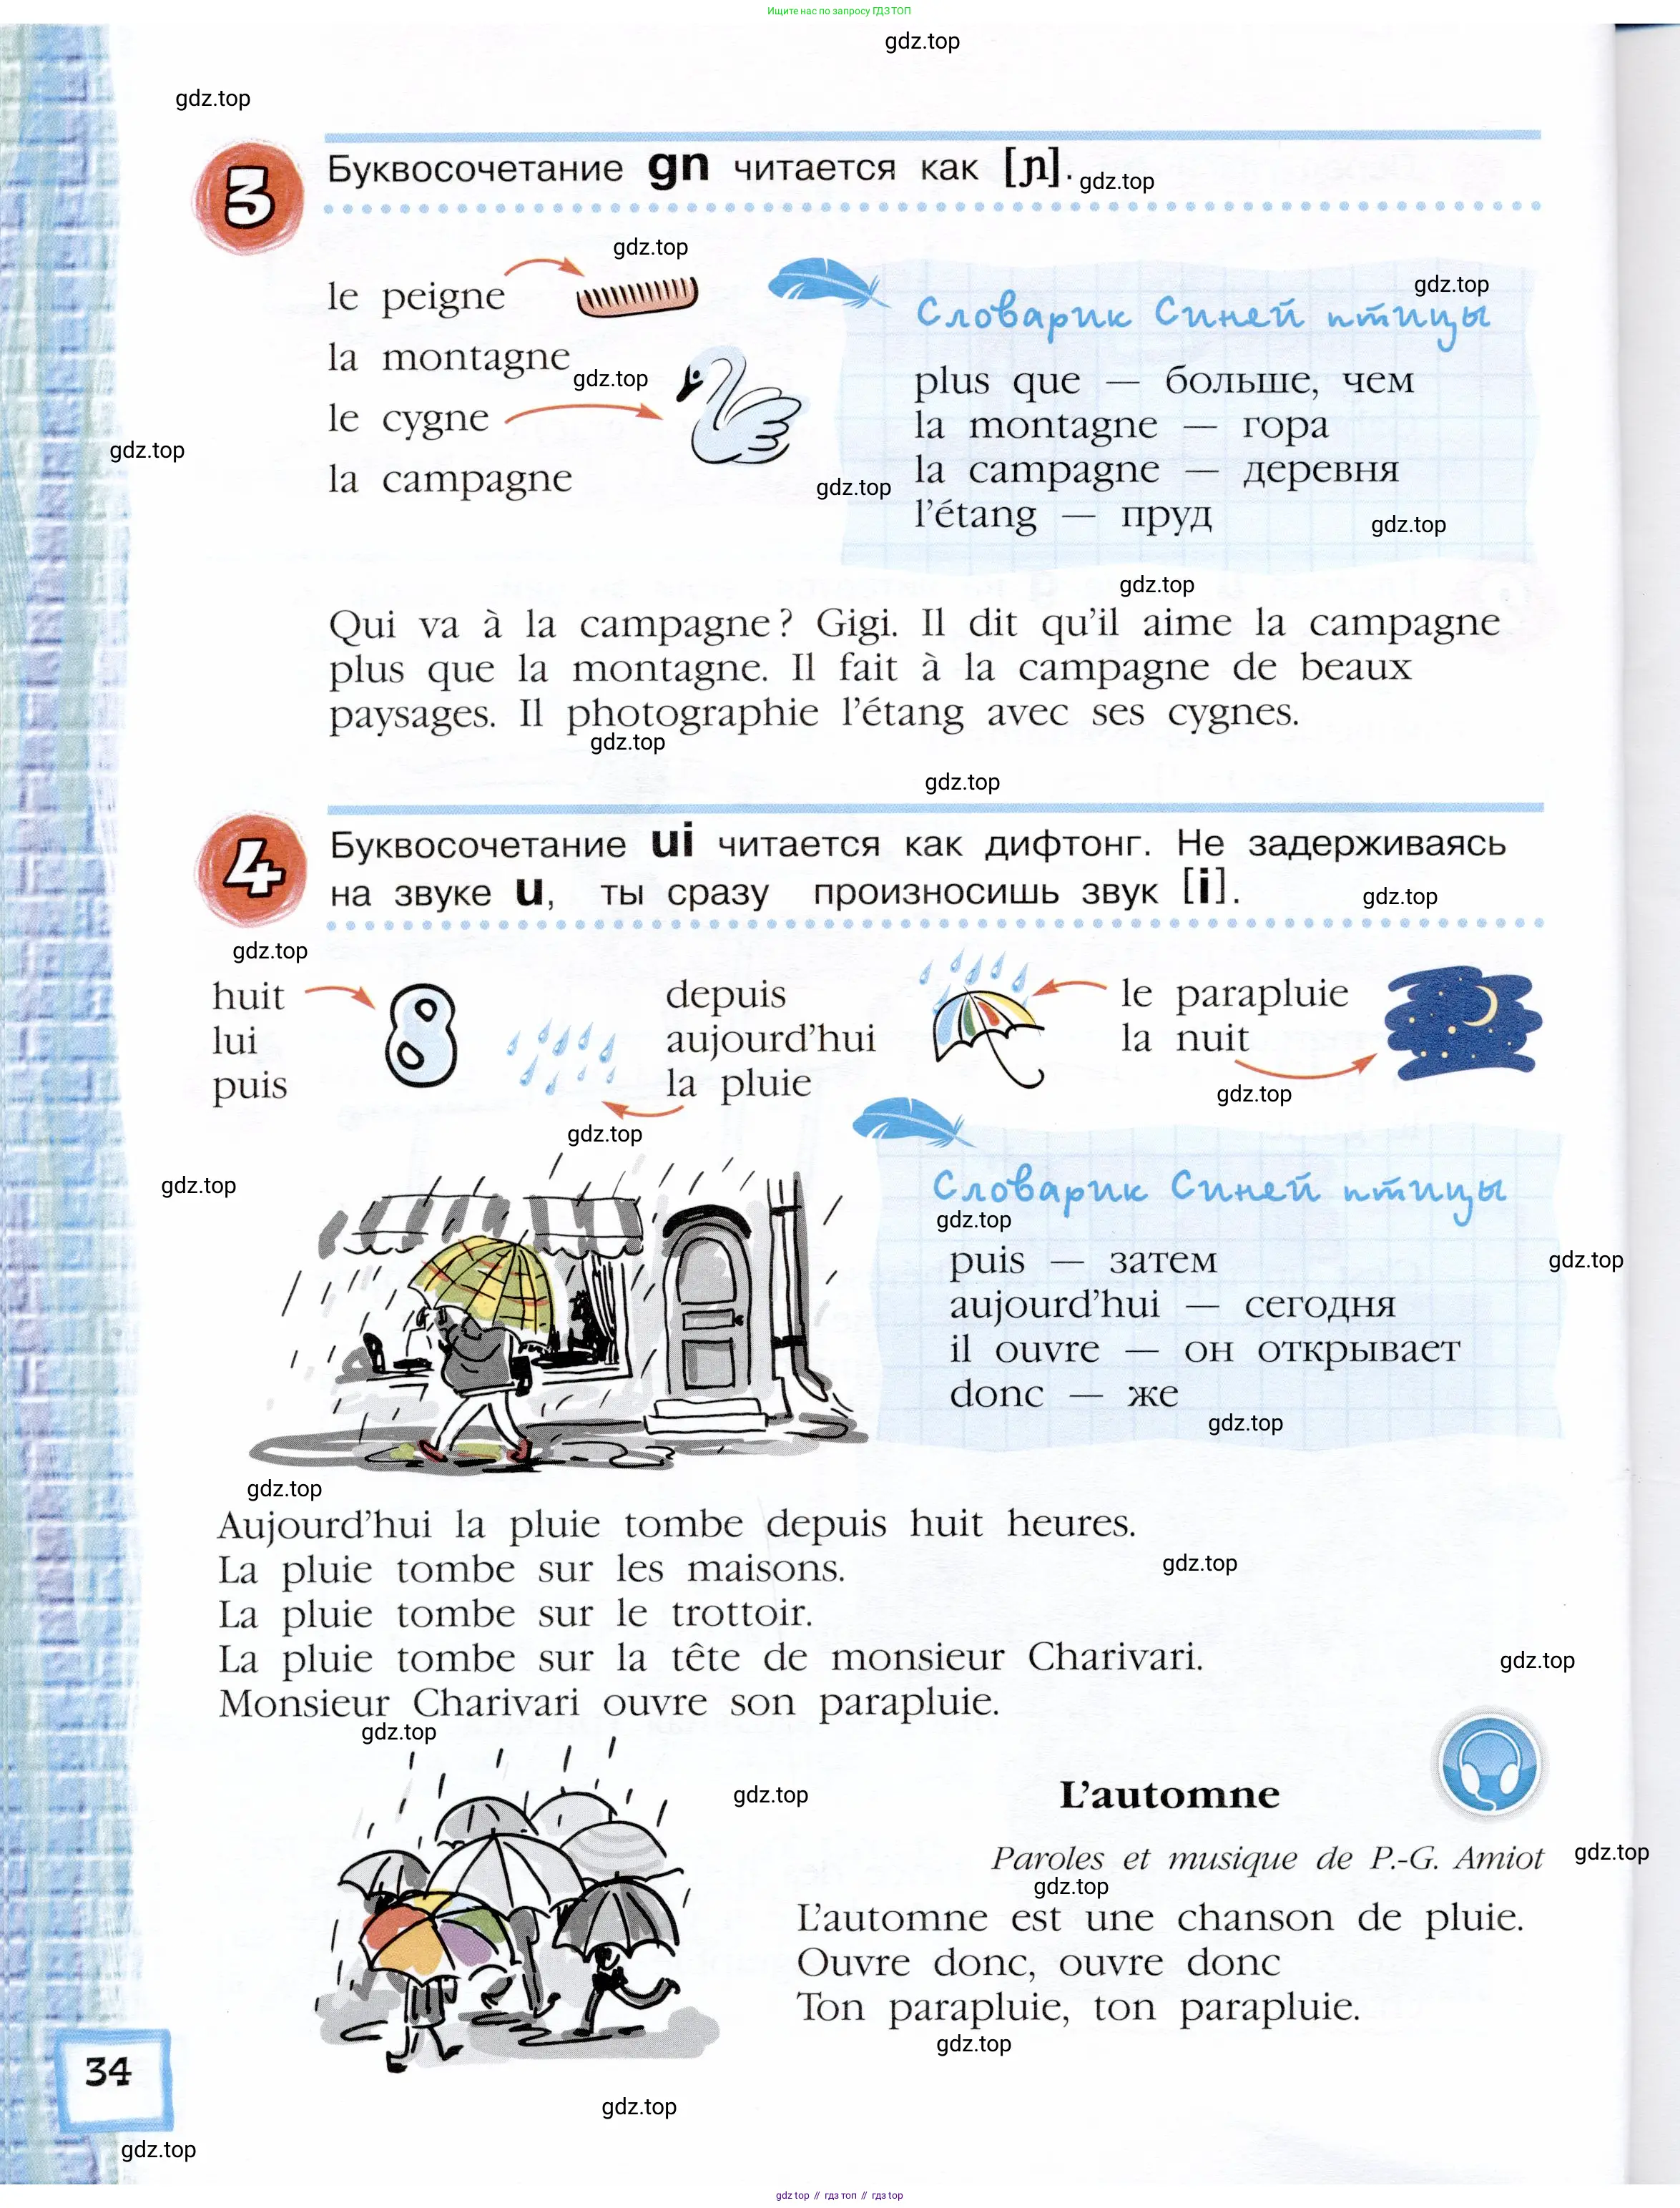 Ищите нас по запросу ГДЗ ТОП
gdz.top
gdz.top
3
Буквосочетание gn читается как [ɲ].
gdz.top
gdz.top
le peigne
la montagne
gdz.top
le cygne
la campagne
gdz.top
gdz.top
Словарик Синей птицы
gdz.top
plus que — больше, чем
la montagne — гора
la campagne — деревня
l'étang — пруд
gdz.top
gdz.top
Qui va à la campagne ? Gigi. Il dit qu'il aime la campagne
plus que la montagne. Il fait à la campagne de beaux
paysages. Il photographie l'étang avec ses cygnes.
gdz.top
gdz.top
4
Буквосочетание ui читается как дифтонг. Не задерживаясь
на звуке u, ты сразу произносишь звук [i].
gdz.top
gdz.top
huit
lui
puis
8
depuis
aujourd'hui
la pluie
le parapluie
la nuit
gdz.top
gdz.top
gdz.top
Словарик Синей птицы
gdz.top
puis — затем
gdz.top
aujourd'hui — сегодня
il ouvre — он открывает
donc — же
gdz.top
gdz.top
Aujourd'hui la pluie tombe depuis huit heures.
La pluie tombe sur les maisons.
gdz.top
La pluie tombe sur le trottoir.
La pluie tombe sur la tête de monsieur Charivari.
gdz.top
Monsieur Charivari ouvre son parapluie.
gdz.top
gdz.top
L'automne
Paroles et musique de P.-G. Amiot
gdz.top
gdz.top
L'automne est une chanson de pluie.
Ouvre donc, ouvre donc
Ton parapluie, ton parapluie.
gdz.top
34
gdz.top
gdz.top
gdz.top // гдз топ // гдз top